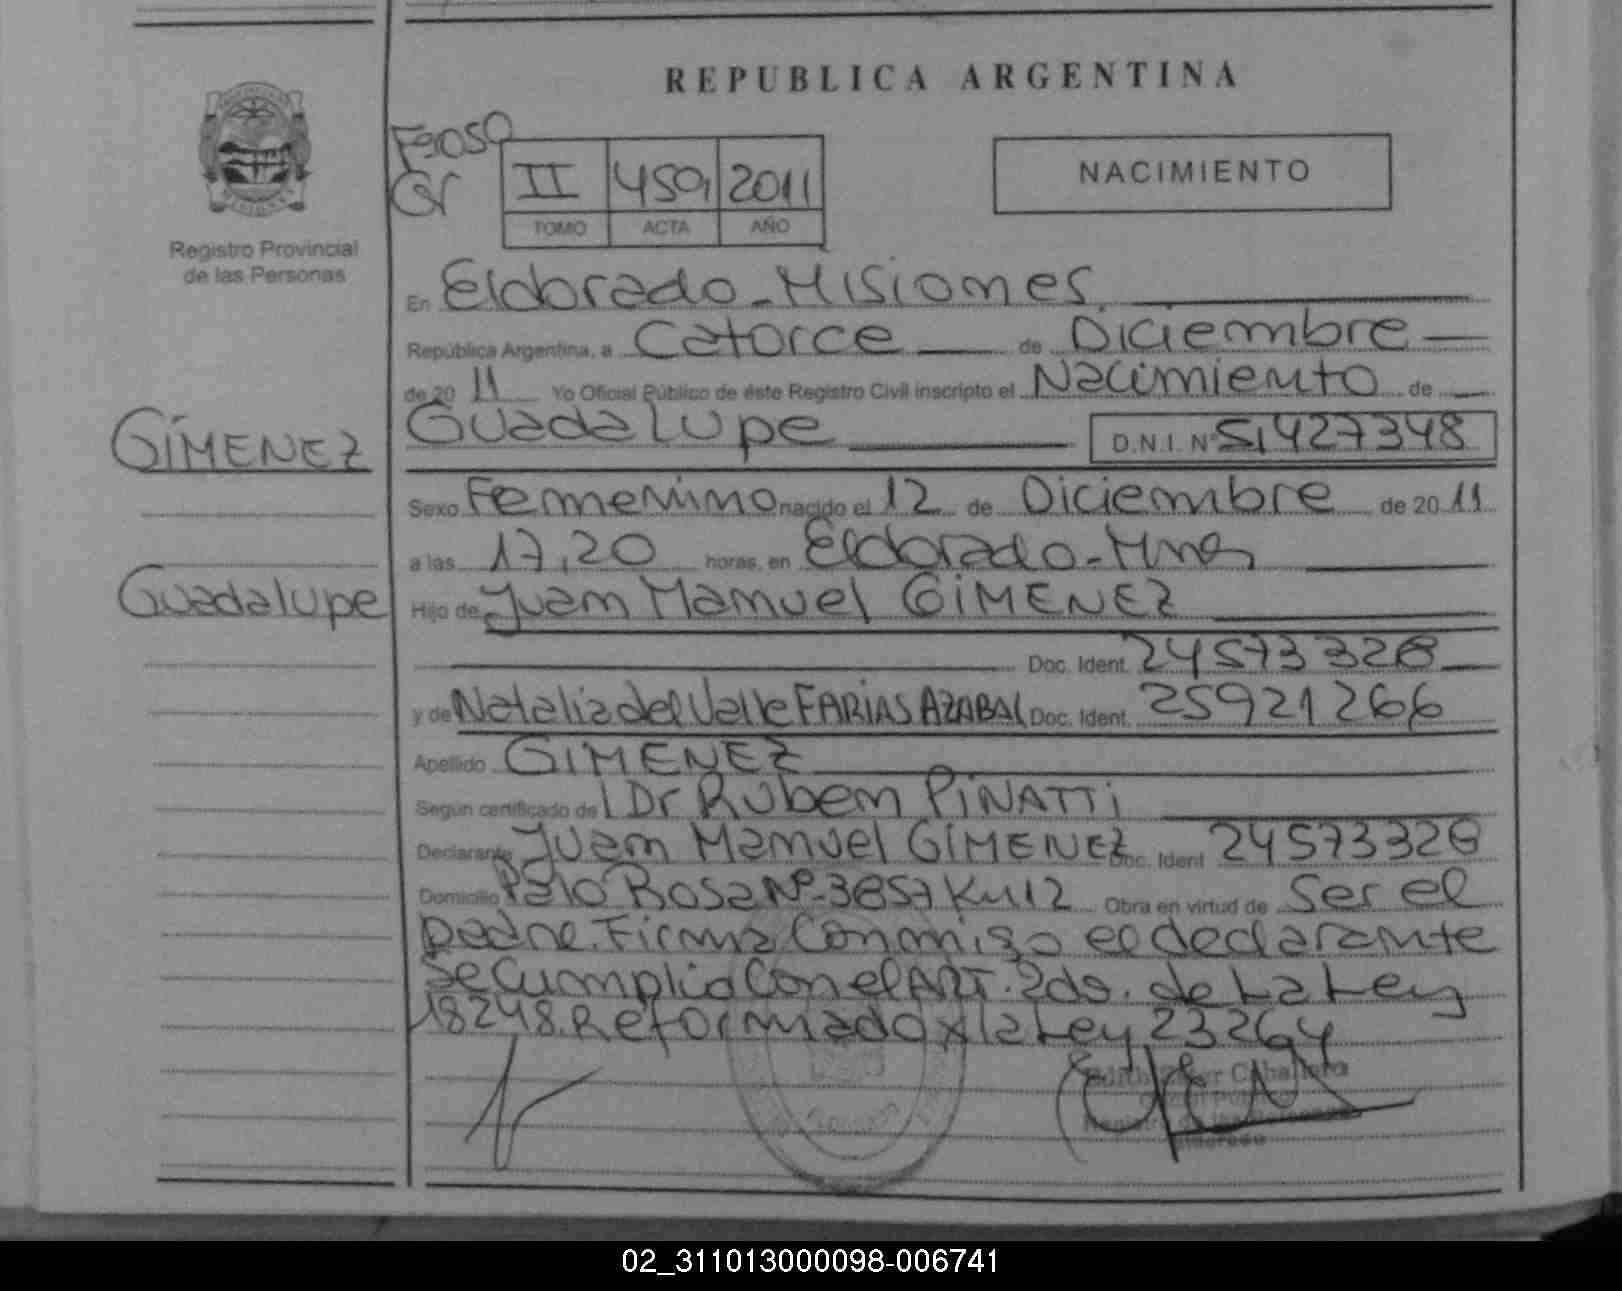 REPUBLICA ARGENTINA
Registro Provincial
de las Personas
Fº 050
II 450 2011
TOMO ACTA AÑO
NACIMIENTO
En Eldorado - Misiones
República Argentina, a Catorce de Diciembre
de 20 11 Yo Oficial Público de éste Registro Civil inscripto el Nacimiento de
GIMENEZ
Guadalupe
Guadalupe D.N.I. Nº 51427348
Sexo Femenino nacido el 12 de Diciembre de 20 11
a las 17,20 horas, en Eldorado - Mnes
Hijo de Juan Manuel GIMENEZ
Doc. Ident. 24573328
y de Natalia del Valle FARIAS AZABAL Doc. Ident. 25921266
Apellido GIMENEZ
Según certificado de Dr Ruben PINATTI
Declarante Juan Manuel GIMENEZ Doc. Ident 24573328
Domicilio Palo Rosa Nº 3857 Km 12 Obra en virtud de Ser el
padre. Firma Conmigo el declarante
Se Cumplio Con el ART. 2do. de La Ley
18248. Reformado x la Ley 23264
Edith Caballero
Oficial Público
Eldorado
02_311013000098-006741